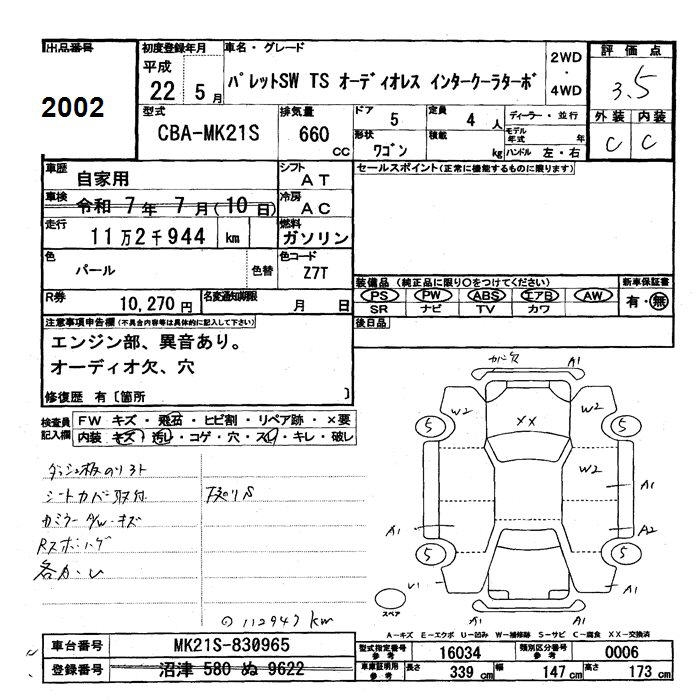 出品番号
2002
初度登録年月
平成
22 5月
車名・グレード
パレットSW TS オーディオレス インタークーラターボ
2WD
・
4WD
評価点
3.5
外装 内装
C C
型式
CBA-MK21S
排気量
660
CC
ドア
5
定員
4 人
ディーラー・並行
形状
ワゴン
積載
kg
モデル年式 年
ハンドル 左・右
車歴
自家用
シフト
AT
車検
令和 7年 7月(10日)
冷房
AC
走行
11万2千944 km
燃料
ガソリン
色
パール
色替
色コード
Z7T
R券
10,270円
名変通知期限
月 日
セールスポイント(正常に機能するものに限ります)
装備品(純正品に限り○をつけてください)
PS PW ABS エアB AW
SR ナビ TV カワ
新車保証書
有・無
後日品
注意事項申告欄(不具合内容等は具体的に記入して下さい)
エンジン部、異音あり。
オーディオ欠、穴
修復歴 有〔箇所 〕
検査員
記入欄
FW キズ・飛石・ヒビ割・リペア跡・×要
内装 キズ・汚れ・コゲ・穴・スレ・キレ・破レ
シートカバー取付
カミラー A/W・キズ
⊙ 112947 km
カバ欠
A1
W2
XX
W2
5
5
W2
A1
A1
A2
5
5
A1
A1
スペア
A1
A-キズ E-エクボ U-凹み W-補修跡 S-サビ C-腐食 XX-交換済
車台番号
MK21S-830965
登録番号
沼津 580 ぬ 9622
型式指定番号
参考
16034
類別区分番号
参考
0006
車庫証明用
参考
長さ
339 cm
幅
147 cm
高さ
173 cm